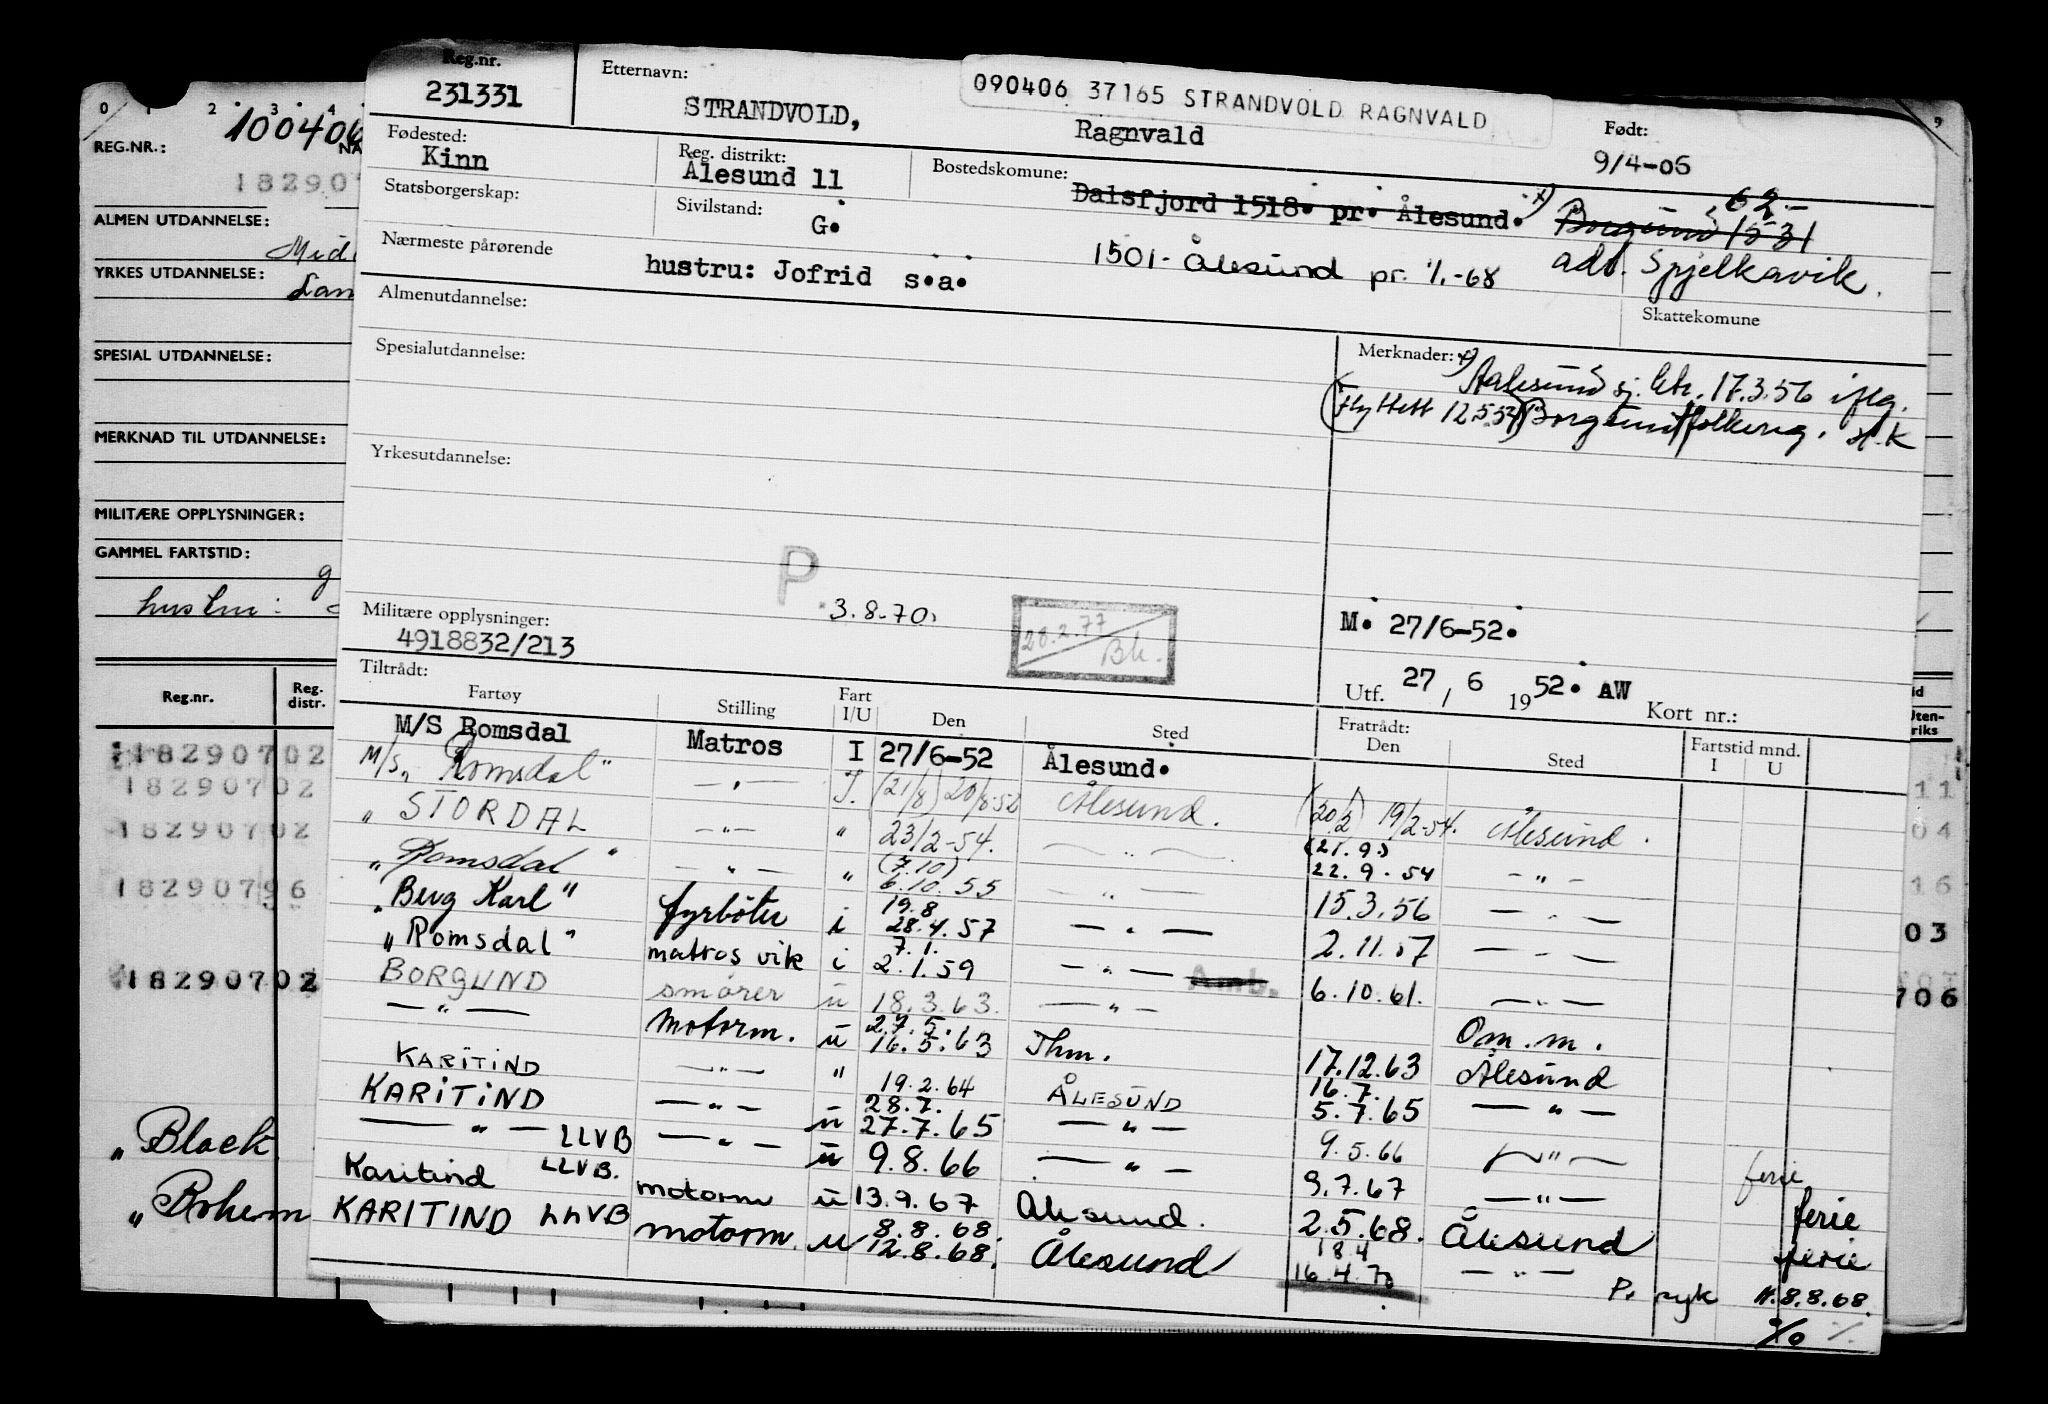 Reg.nr.
231331
Etternavn:
STRANDVOLD,
Ragnvald
090406 37165 STRANDVOLD RAGNVALD
Født:
9/4-06
Fødested:
Kinn
Reg. distrikt:
Ålesund 11
Bostedskomune:
Dalsfjord 1518. pr. Ålesund. x)
Borgund 1531
62.-
Statsborgerskap:
Sivilstand:
G.
1501- Ålesund pr. 1/1-68
adr. Spjelkavik.
Nærmeste pårørende
hustru: Jofrid s.a.
Skattekomune
Almenutdannelse:
Spesialutdannelse:
Merknader: x)
Aalesund sj. ktr. 17.3.56 iflg.
(Flyttett 12.5.52) Borgund folkereg. H.K
Yrkesutdannelse:
P. 3.8.70.
Militære opplysninger:
4918832/213
28.2.77
Bh.
M. 27/6-52.
Utf. 27 / 6 1952. AW Kort nr.:
Tiltrådt:
Fratrådt:
Fartøy Stilling Fart I/U Den Sted Den Sted Fartstid mnd. I U
M/S Romsdal Matros I 27/6-52 Ålesund.
M/S „Romsdal" — " — I. (21/8) 20/8-52 Ålesund. (20/2) 19/2-54. Ålesund.
„ STORDAL — " — " 23/2-54. — " — (21.9.) 22.9.54 — " —
„ Romsdal " — " — " (7.10) 6.10.55 — " — 15.3.56 — " —
„Berg Karl" fyrbøter i 19.8 28.4.57 — " — 2.11.57 — " —
„Romsdal" matros vik i 7.1. 2.1.59 — " — 6.10.61. — " —
BORGUND smører u 18.3.63. — " — Amb.
— " — Motorm. u 27.5. 16.5.63 Thm. 17.12.63 Om.m. Ålesund
KARITIND — " — " 19.2.64 ÅLESUND 16.7. 5.7.65 — " —
KARITIND — " — u 28.7. 27.7.65 — " — 9.5.66 — " — ferie
— " — LLVB — " — u 9.8.66 — " — 9.7.67 — " — ferie
Karitind LLVB. motorm u 13.9.67 Ålesund. 2.5.68. Ålesund ferie
KARITIND LLVB motorm. u 8.8.68. 12.8.68. Ålesund 18.4 16.4.70 — " —
P. syk 11.8.8.68.
0 1 2 3 4
9
REG.NR.:
100406
18290
ALMEN UTDANNELSE:
YRKES UTDANNELSE:
SPESIAL UTDANNELSE:
MERKNAD TIL UTDANNELSE:
MILITÆRE OPPLYSNINGER:
GAMMEL FARTSTID:
g
hustru:
Reg.nr. Reg. distr.
18290702
18290702
18290702
18290796
18290702
„Black
„Bohem
11
04
16
03
706